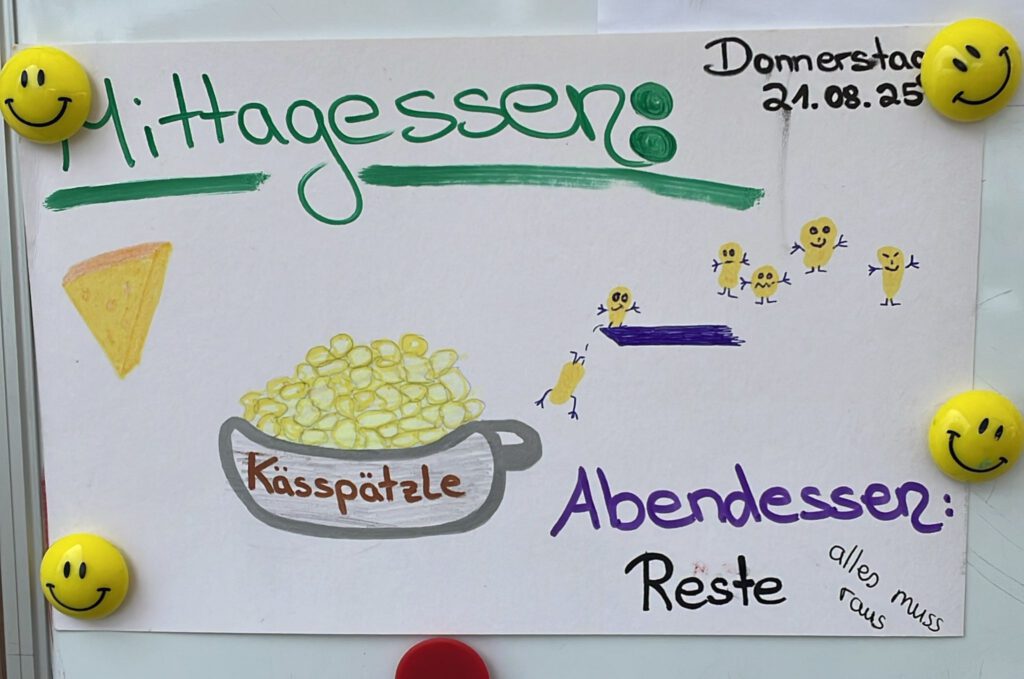 Mittagessen:
Donnerstag
21.08.25
Kässpätzle
Abendessen:
Reste
alles muss
raus